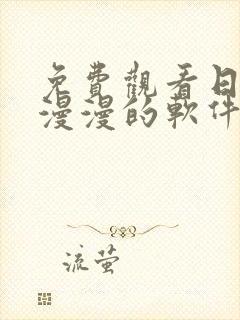 免費觀看日
漫漫的軟件
流萤